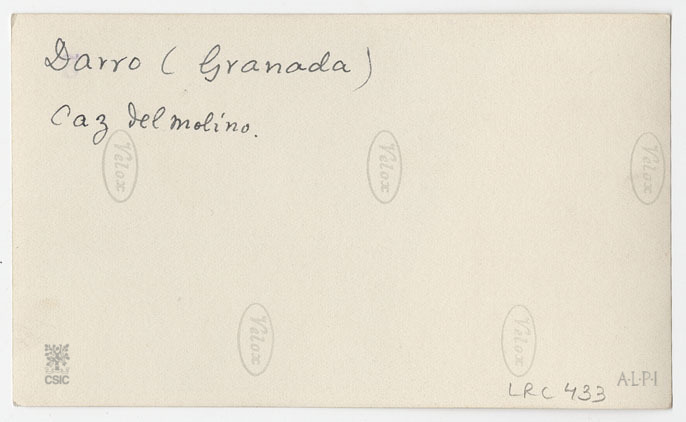 Darro (Granada)
Caz del molino.
Velox
Velox
Velox
Velox
Velox
CSIC
LRC 433
A·L·P·I